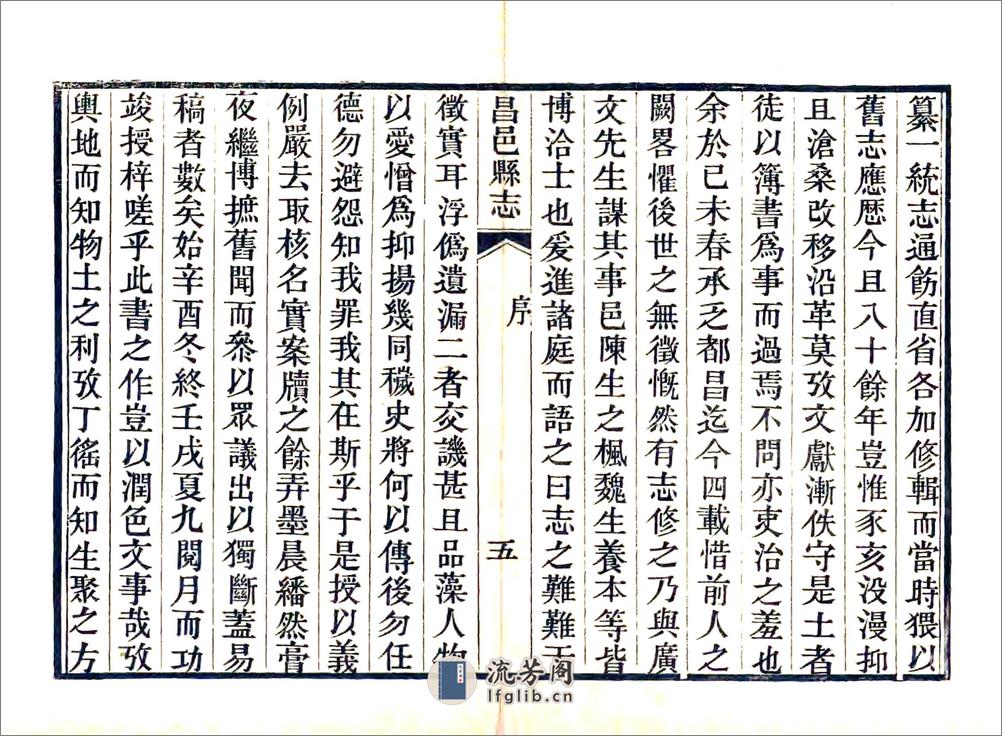 纂一統志通飭直省各加修輯而當時猥以
舊志應厯今且八十餘年豈惟豕亥没漫抑
且滄桑改移沿革莫攷文獻漸佚守是土者
徒以簿書爲事而過焉不問亦吏治之羞也
余於已未春承乏都昌迄今四載惜前人之
闕畧懼後世之無徵慨然有志修之乃與廣
文先生謀其事邑陳生之楓魏生養本等皆
博洽士也爰進諸庭而語之曰志之難難于
昌邑縣志
序
五
徵實耳浮僞遺漏二者交譏甚且品藻人物
以愛憎爲抑揚幾同穢史將何以傳後勿任
德勿避怨知我罪我其在斯乎于是授以義
例嚴去取核名實案牘之餘弄墨晨繙然膏
夜繼博摭舊聞而叅以眾議出以獨斷蓋易
稿者數矣始辛酉冬終壬戌夏九閱月而功
竣授梓嗟乎此書之作豈以潤色文事哉攷
輿地而知物土之利攷丁徭而知生聚之方
流芳阁
lfglib.cn